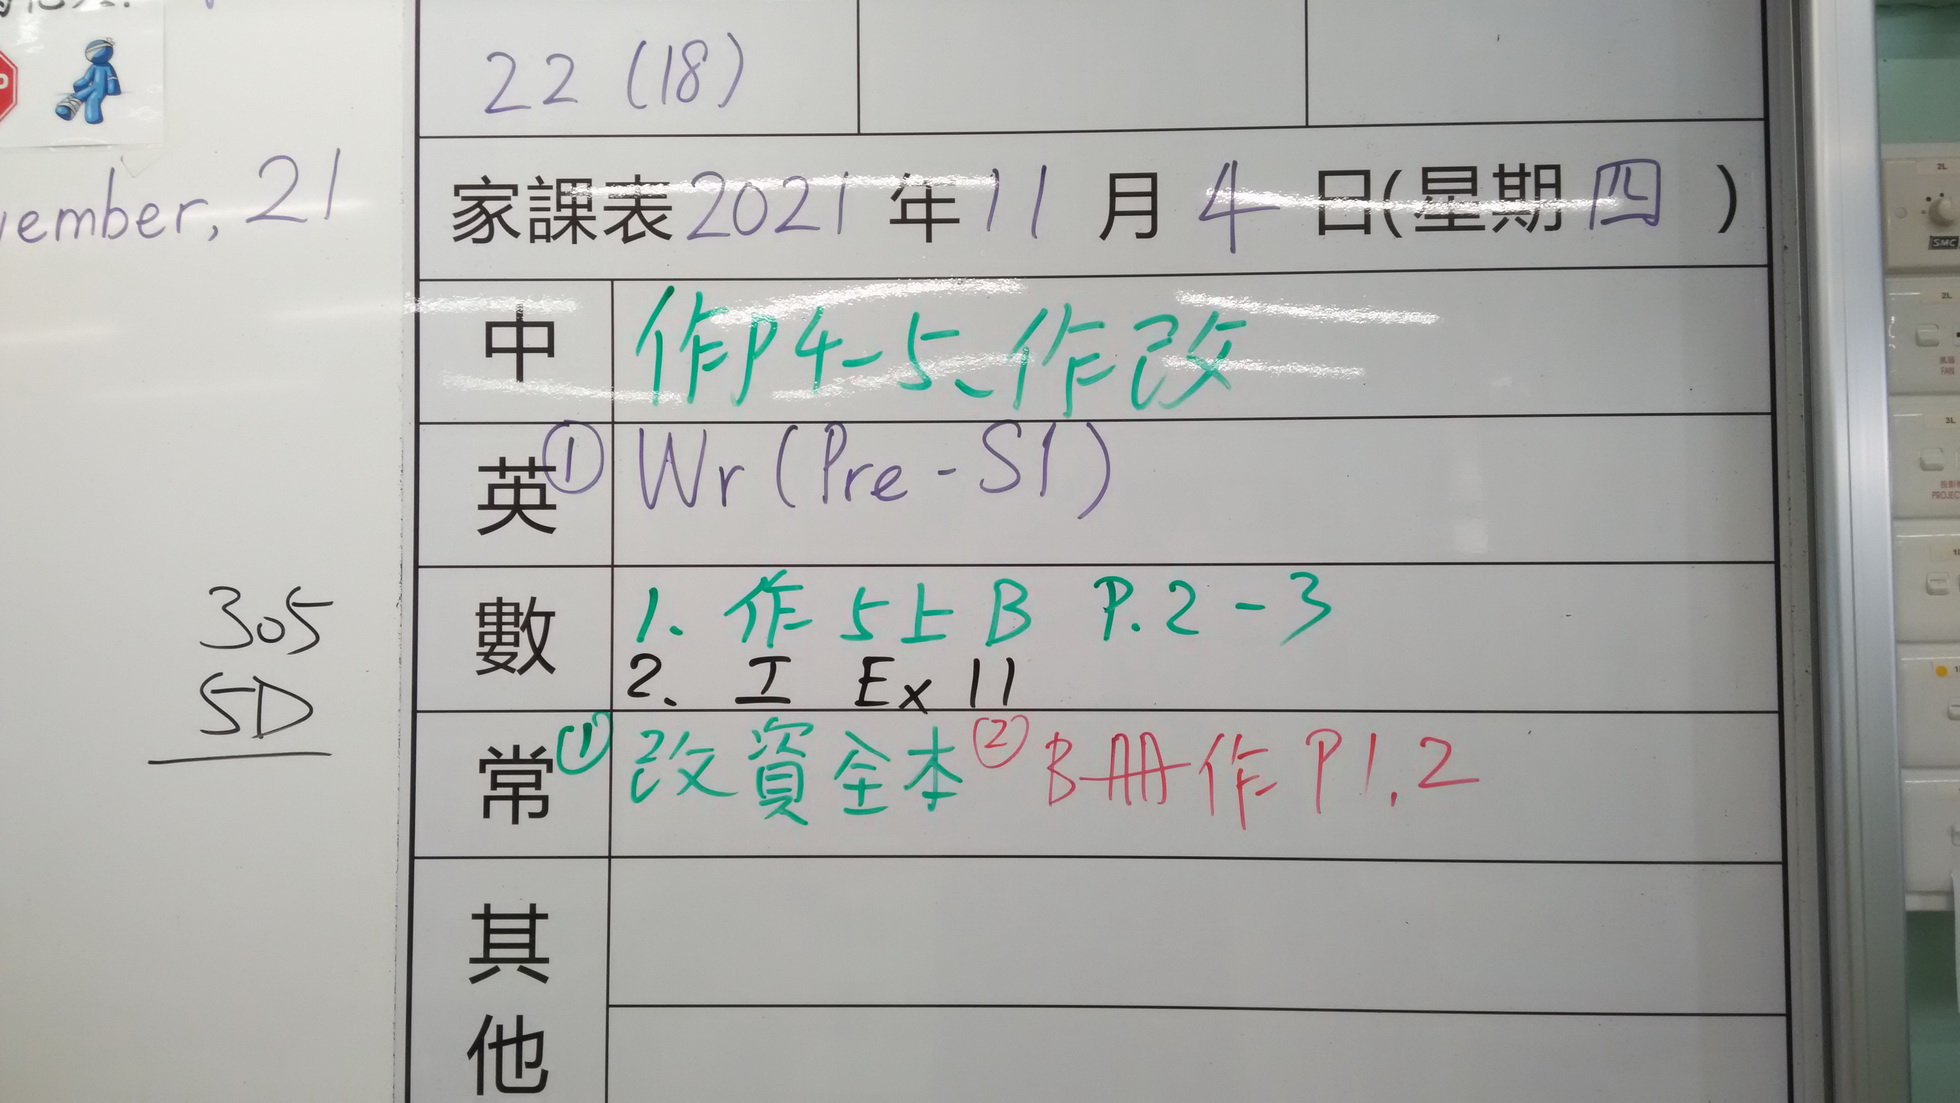 22 (18)
vember, 21
家課表 2021 年 11 月 4 日(星期 四 )
中 作P4-5、作改
英 ① Wr (Pre-S1)
數 1. 作 5上B P.2-3
2. 工 Ex 11
常 ① 改資全本 ② B冊作 P1.2
305
5D
其
他
2L
SMC
2L
風扇
FAN
3L